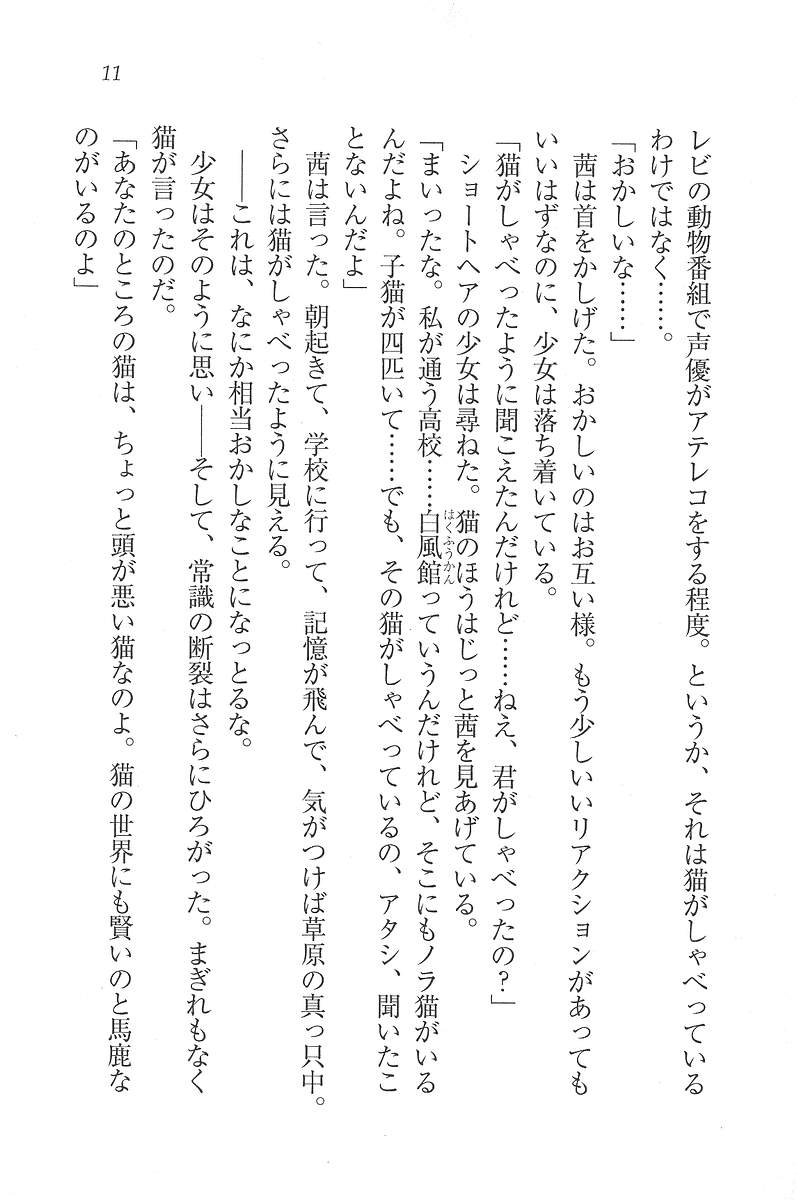 11
レビの動物番組で声優がアテレコをする程度。というか、それは猫がしゃべっている
わけではなく……。
「おかしいな……」
茜は首をかしげた。おかしいのはお互い様。もう少しいいリアクションがあっても
いいはずなのに、少女は落ち着いている。
「猫がしゃべったように聞こえたんだけれど……ねえ、君がしゃべったの？」
ショートヘアの少女は尋ねた。猫のほうはじっと茜を見あげている。
「まいったな。私が通う高校……白風館っていうんだけれど、そこにもノラ猫がいる
はくふうかん
んだよね。子猫が四匹いて……でも、その猫がしゃべっているの、アタシ、聞いたこ
とないんだよ」
茜は言った。朝起きて、学校に行って、記憶が飛んで、気がつけば草原の真っ只中。
さらには猫がしゃべったように見える。
――これは、なにか相当おかしなことになっとるな。
少女はそのように思い――そして、常識の断裂はさらにひろがった。まぎれもなく
猫が言ったのだ。
「あなたのところの猫は、ちょっと頭が悪い猫なのよ。猫の世界にも賢いのと馬鹿な
のがいるのよ」